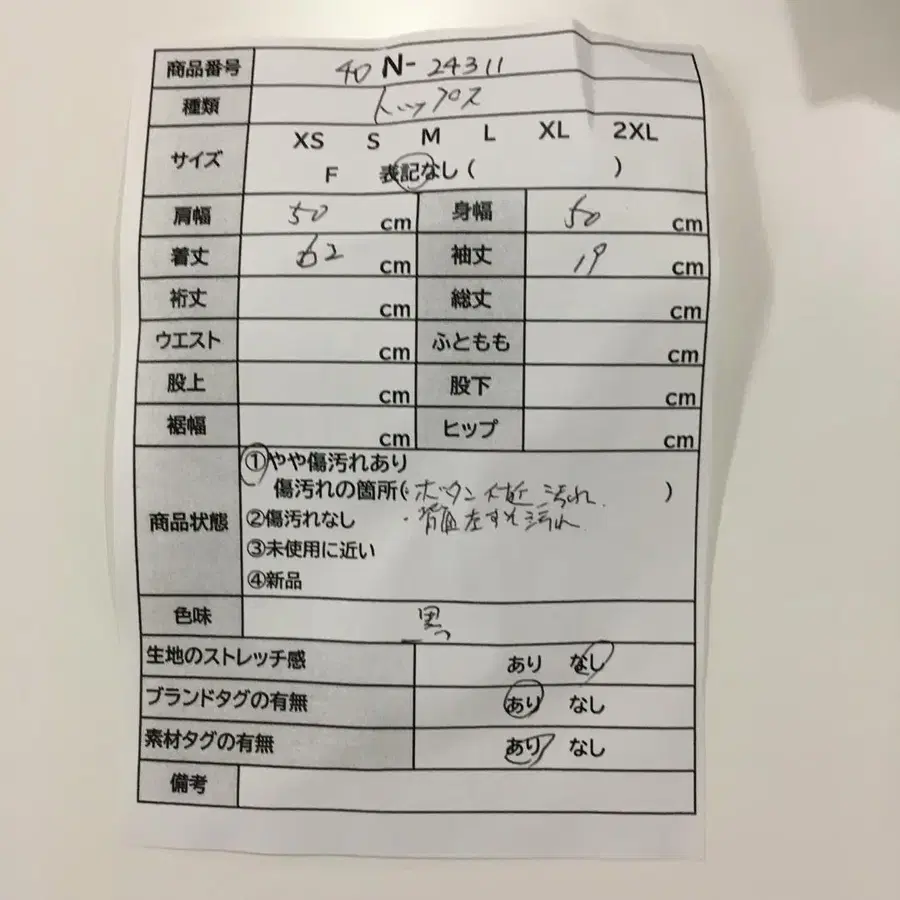 商品番号 40 N-24311
種類 トップス
サイズ XS S M L XL 2XL
F 表記なし( )
肩幅 50 cm 身幅 50 cm
着丈 62 cm 袖丈 19 cm
裄丈 cm 総丈 cm
ウエスト cm ふともも cm
股上 cm 股下 cm
裾幅 cm ヒップ cm
商品状態 ①やや傷汚れあり
傷汚れの箇所(・ボタン付近 汚れ )
②傷汚れなし ・背面左すそ汚れ
③未使用に近い
④新品
色味 黒
生地のストレッチ感 あり なし
ブランドタグの有無 あり なし
素材タグの有無 あり なし
備考